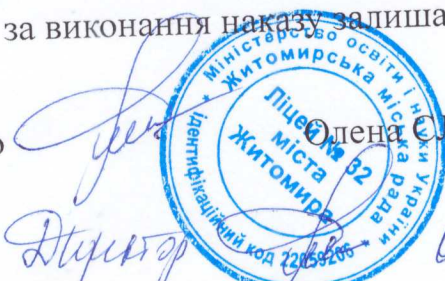 за виконання наказу залиша
Олена СЛ
Міністерство освіти і науки України
Житомирська міська рада
Ліцей № 32
міста
Житомира
ідентифікаційний код 22059206
Директор